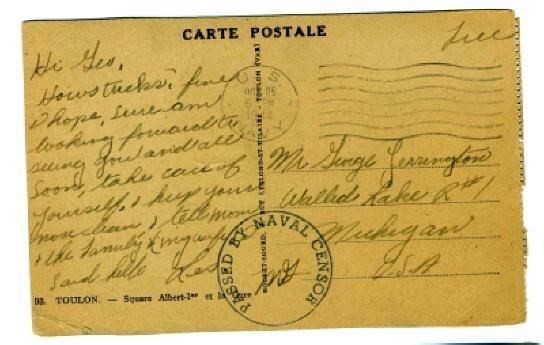 CARTE POSTALE
Free
Hi Geo,
Hows tricks, fine
I hope, sure am
looking forward to
seeing you and all
soon, take care of
yourself, & keep your
nose clean, & tell mom
& the family, & my wife
said hello
U.S.
NAVY
TOULON (VAR)
Mr George Jerrington
Walled Lake R#1
Michigan
USA
PASSED BY NAVAL CENSOR
93. TOULON. — Square Albert-1er et la Gare